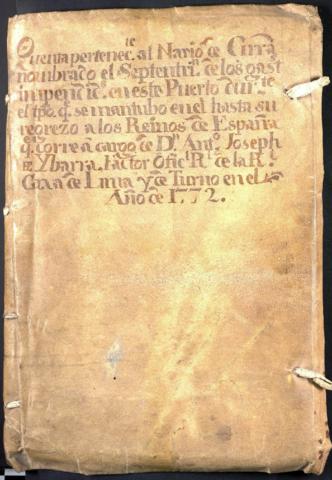 Quenta pertenec.te al Nario de Grra
nombrado el Septentrn. de los gast
impendis. en este Puerto dur.te
el tpo. q. se mantubo en el hasta su
regrezo a los Reinos de España
q. corre a cargo de Dn. Anto. Joseph
de Ybarra, Factor Ofic.l R.l de la R.l
Caxa de Lima y de Turno en el
Año de 1772.